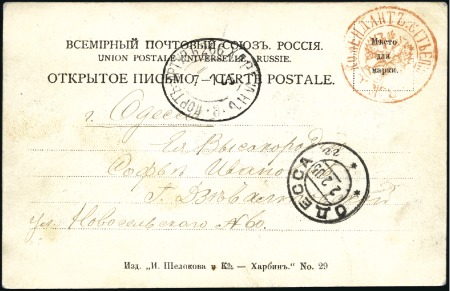 ВСЕМІРНЫЙ ПОЧТОВЫЙ СОЮЗЪ. РОССІЯ.
UNION POSTALE UNIVERSELLE. RUSSIE.
ОТКРЫТОЕ ПИСЬМО. — CARTE POSTALE.
Мѣсто
для
марки.
г. Одесса
Ея Высокород
Софьѣ Ивано
ул. Новосельскаго № 60.
ОДЕССА
Изд. „И. Щелокова и К⁰. — Харбинъ.“ No. 29